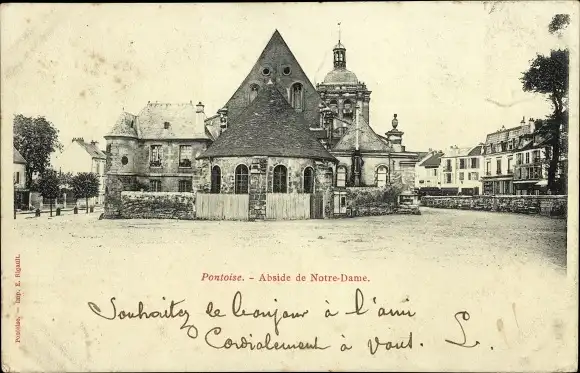 Pontoise. - Abside de Notre-Dame.
Souhaitez le bonjour à l'ami
Cordialement à vous. L.
Pontoise. — Imp. E. Rigault.